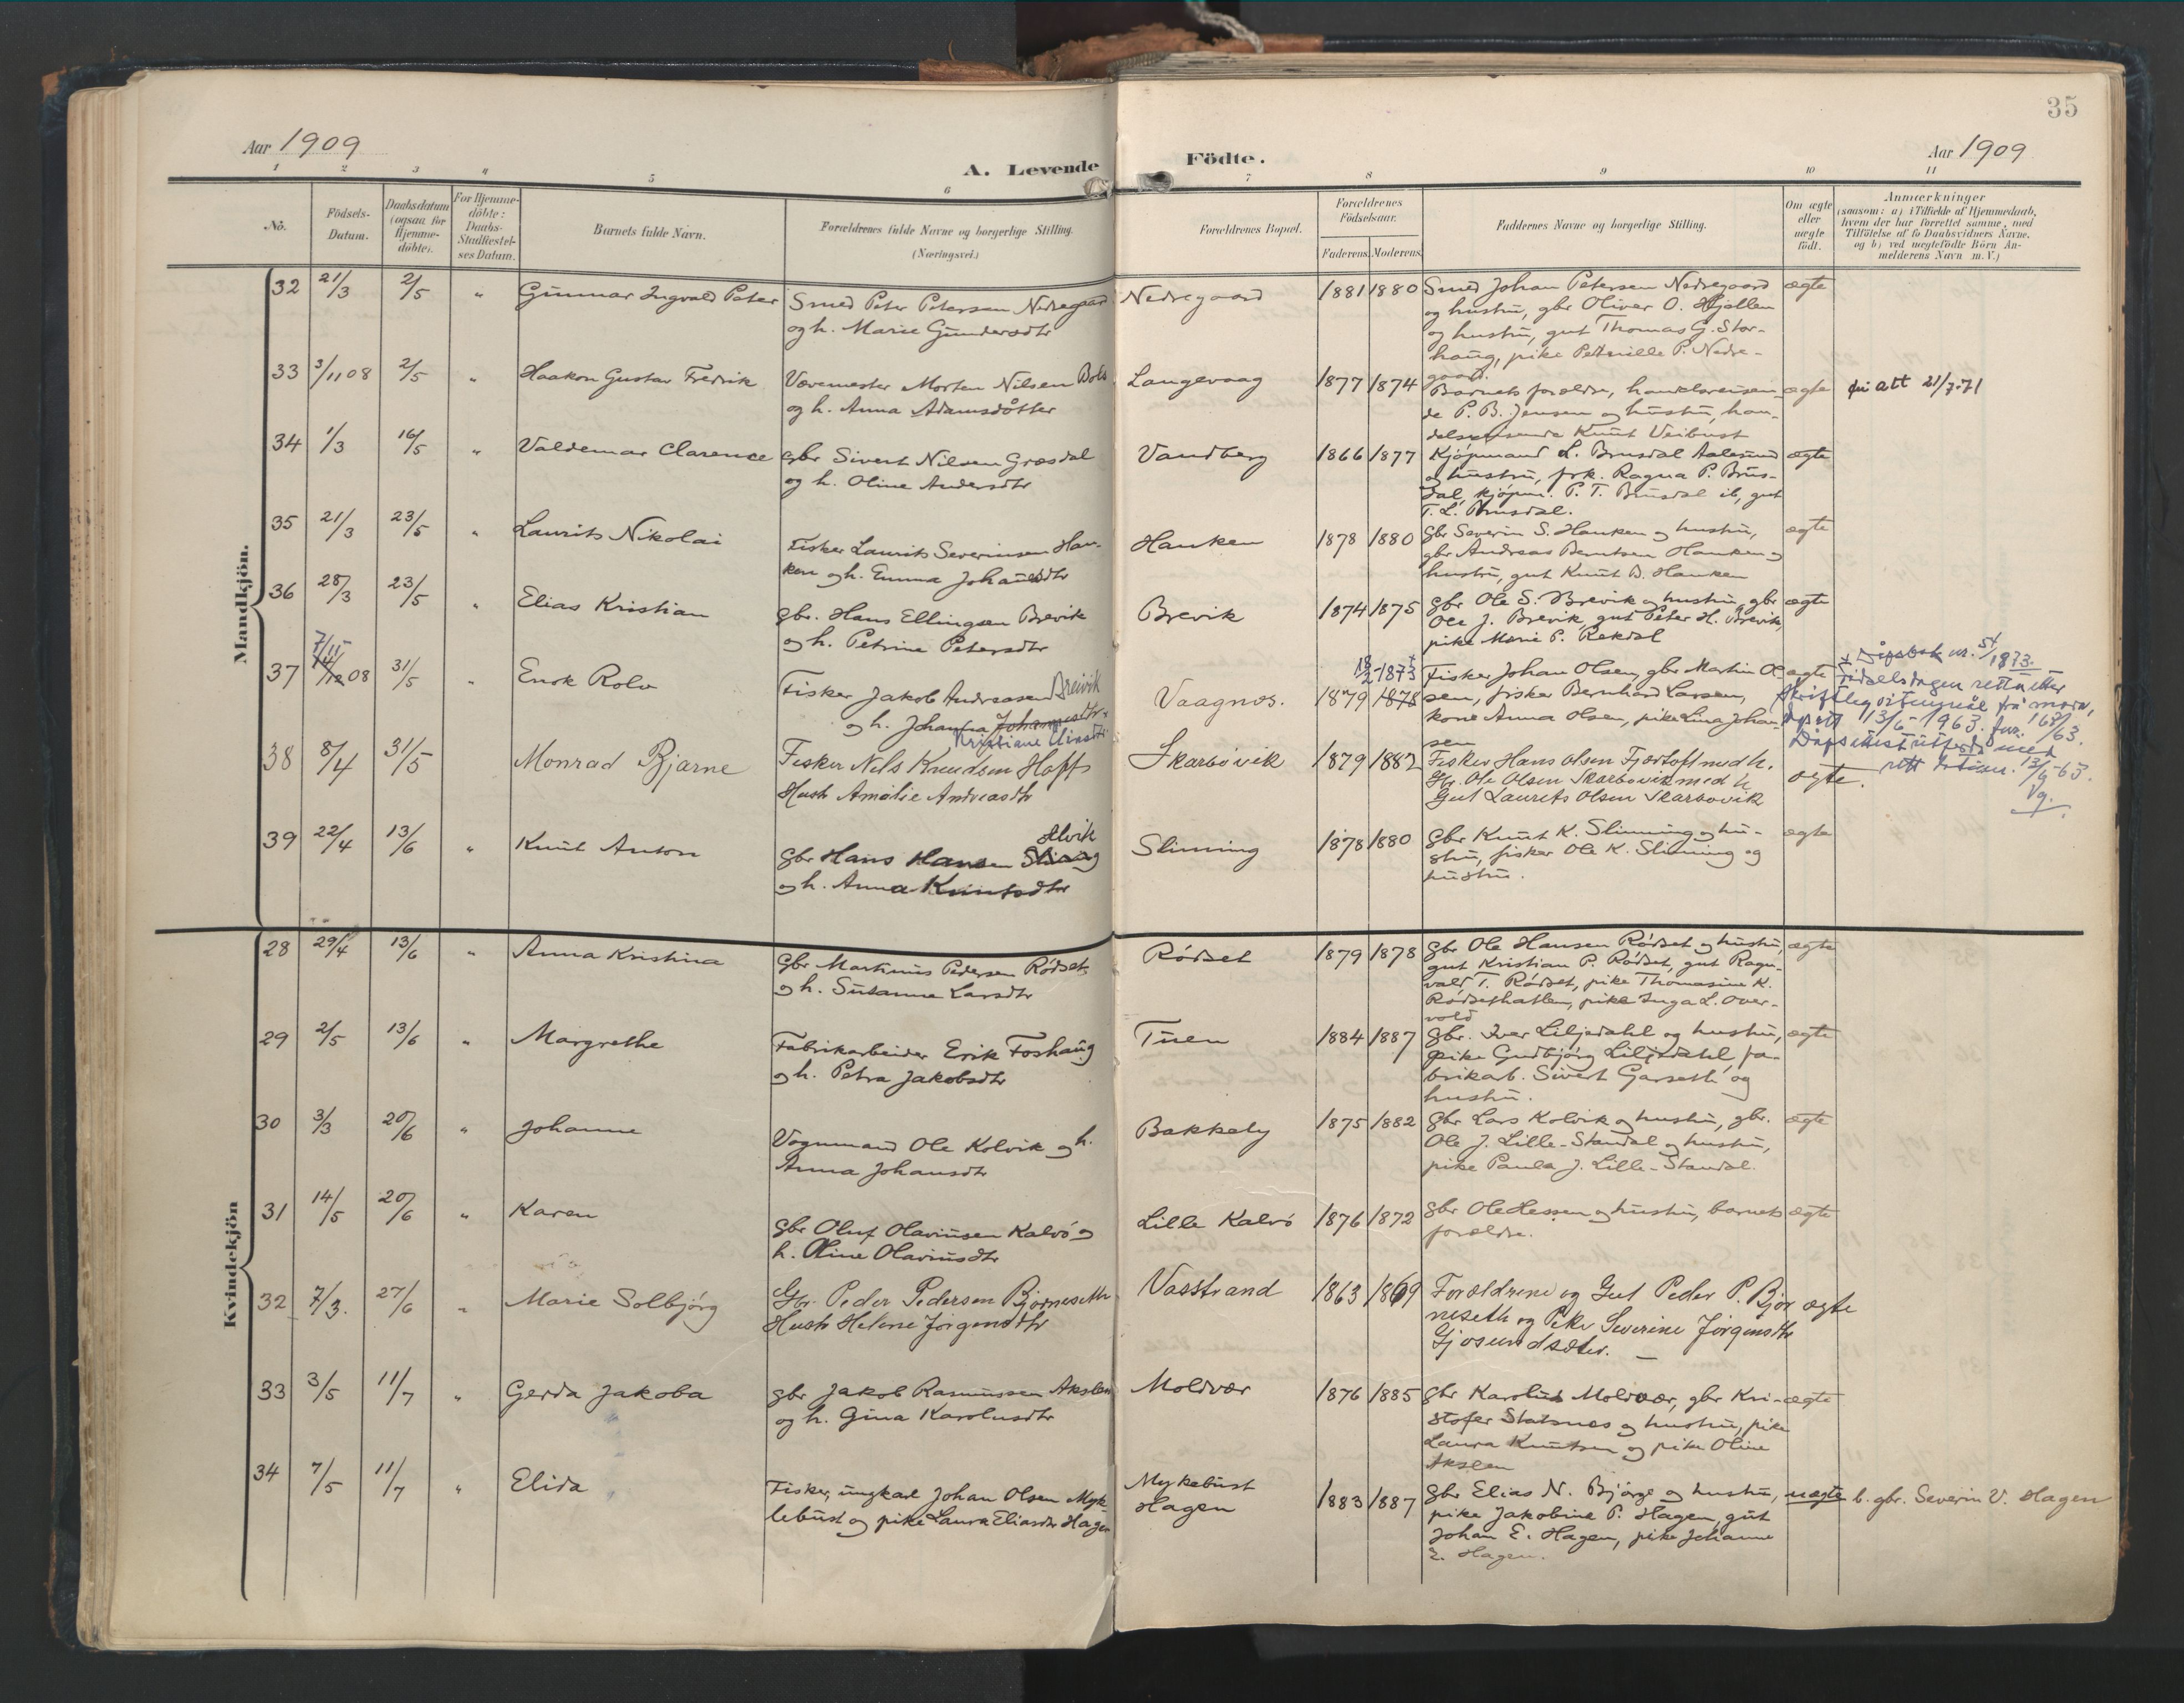 35
Aar 1909
A. Levende
Födte.
Aar 1909
1 2 3 4 5 6 7 8 9 10 11
No.
Födsels-
Datum.
Daabsdatum
(ogsaa for
Hjemme-
döbte).
For Hjemme-
döbte:
Daabs-
Stadfæstel-
ses Datum.
Barnets fulde Navn.
Forældrenes fulde Navne og borgerlige Stilling.
(Næringsvei.)
Forældrenes Bopæl.
Forældrenes
Födselsaar.
Faderens. Moderens.
Faddernes Navne og borgerlige Stilling.
Om ægte
eller
uægte
födt.
Anmærkninger
(saasom: a) i Tilfælde af Hjemmedaab,
hvem der har forrettet samme, med
Tilföielse af to Daabsvidners Navne,
og b) ved uægtefödte Börn An-
melderens Navn m. V.)
Mandkjön.
32 21/3 2/5 " Gunnar Ingvald Peter
Smed Peter Petersen Nedregaard
og h. Marie Gundersdtr
Nedregaard 1881 1880
Smed Johan Petersen Nedregaard
og hustru, gbr Oliver O. Hjellen
og hustru, gut Thomas G. Stor-
haug, pike Petrnille P. Nedre-
gaard.
ægte
33 3/11 08 2/5 " Haakon Gustav Fredrik
Vævemester Morten Nilsen Bols
og h. Anna Adamsdótter
Langevaag 1877 1874
Barnets forældre, handelsreisen-
de P. B. Jensen og hustru, han-
delsreisende Knut Veibust
ægte
att 21/7-71
34 1/3 16/5 " Valdemar Clarence
gbr Sivert Nilsen Græsdal
og h. Oline Andersdtr
Vandberg 1866 1877
Kjøpmand L. Brusdal Aalesund
og hustru, frk. Ragna P. Brus-
dal, kjøpm. P. T. Brusdal ib, gut
T. L. Brusdal.
ægte
35 21/3 23/5 " Laurits Nikolai
Fisker Laurits Severinsen Han-
ken og h. Emma Johansdtr
Hanken 1878 1880
gbr Severin S. Hanken og hustru,
gbr Andreas Berntsen Hanken og
hustru, gut Knut B. Hanken
ægte
36 28/3 23/5 " Elias Kristian
gbr. Hans Ellingsen Brevik
og h. Petrine Petersdtr
Brevik 1874 1875
gbr Ole S. Brevik og hustru, gbr
Ole J. Brevik, gut Peter H. Brevik,
pike Marie P. Rekdal
ægte
7/11
37 14/12 08 31/5 " Enok Rolv
Fisker Jakob Andreassen Breivik
og h. Johanna Johannesdtr
Kristiane Eliasdtr
Vaagnes. 1879 1878
18/2-1873
Fisker Johan Olsen, gbr Martin Ol-
sen, fisker Bernhard Larsen,
kone Anna Olsen, pike Lina Johan-
sen
ægte
x Dåpsbok nr. 51/1873.
Fødselsdagen retta etter
skriftleg vitnemål frå mora,
13/6-1963. jnr. 163/63.
Dåpsattest utferda med
rett datum. 13/6-63.
Vg.
38 8/4 31/5 Monrad Bjarne
Fisker Nils Knudsen Hoff
Hustr Amalie Andreasdtr
Skarbövik 1879 1882
Fisker Hans Olsen Fjørtoft med h.
Gbr. Ole Olsen Skarbovik med h.
Gut Laurits Olsen Skarbovik
ægte.
39 22/4 13/6 " Knut Anton
Alvik
gbr Hans Hansen Slinning
og h. Anna Knutsdtr
Slinning 1878 1880
gbr Knut K. Slinning og hu-
stru, fisker Ole K. Slinning og
hustru.
ægte
Kvindekjön
28 29/4 13/6 " Anna Kristina
gbr Martinus Pedersen Rødset
og h. Susanne Larsdtr
Rødset 1879 1878
gbr Ole Hansen Rødset og hustru,
gut Kristian P. Rødset, gut Ragn-
vald T. Rødset, pike Thomasine K.
Rødsethatlen, pike Inga L. Over-
vold
ægte
29 2/5 13/6 " Margrethe
Fabrikarbeider Erik Foshaug
og h. Petra Jakobsdtr
Tuen 1884 1887
gbr. Iver Liljedahl og hustru,
pike Gudbjørg Liljedahl, fa-
brikarb. Sivert Garseth og
hustru.
ægte
30 3/3 20/6 " Johanne
Vognmand Ole Kolvik og h.
Anna Johansdtr
Bakkely 1875 1882
gbr Lars Kolvik og hustru, gbr.
Ole J. Lille-Standal og hustru,
pike Paula J. Lille-Standal.
ægte
31 14/5 20/6 " Karen
gbr Oluf Olavinsen Kalvø og
h. Oline Olavinsdtr
Lille Kalvø 1876 1872
gbr Ole Lessen og hustru, barnets
forældre.
ægte
32 7/3. 27/6 " Marie Solbjørg
Gbr. Peder Pedersen Bjørneseth
Hustr Helene Jørgensdtr
Vasstrand 1863 1869
Forældrene og Gut Peder P. Bjør
neseth og Pike Severine Jørgensdtr
Gjosundsæter. —
ægte
33 3/5 11/7 " Gerda Jakoba
gbr Jakob Rasmussen Akslen
og h. Gina Karolusdtr
Moldvær 1876 1885
gbr Karolus Moldvær, gbr Kri-
stofer Statsnes og hustru, pike
Laura Knutsen og pike Oline
Akslen
ægte
34 7/5 11/7 " Elida
Fisker, ungkarl Johan Olsen Myk
lebust og pike Laura Eliasdtr Hagen
Mykebust
Hagen
1883 1887
gbr Elias N. Bjørge og hustru,
pike Jakobine P. Hagen, gut
Johan E. Hagen, pike Johanne
E. Hagen.
uægte
b. gbr. Severin V. Hagen